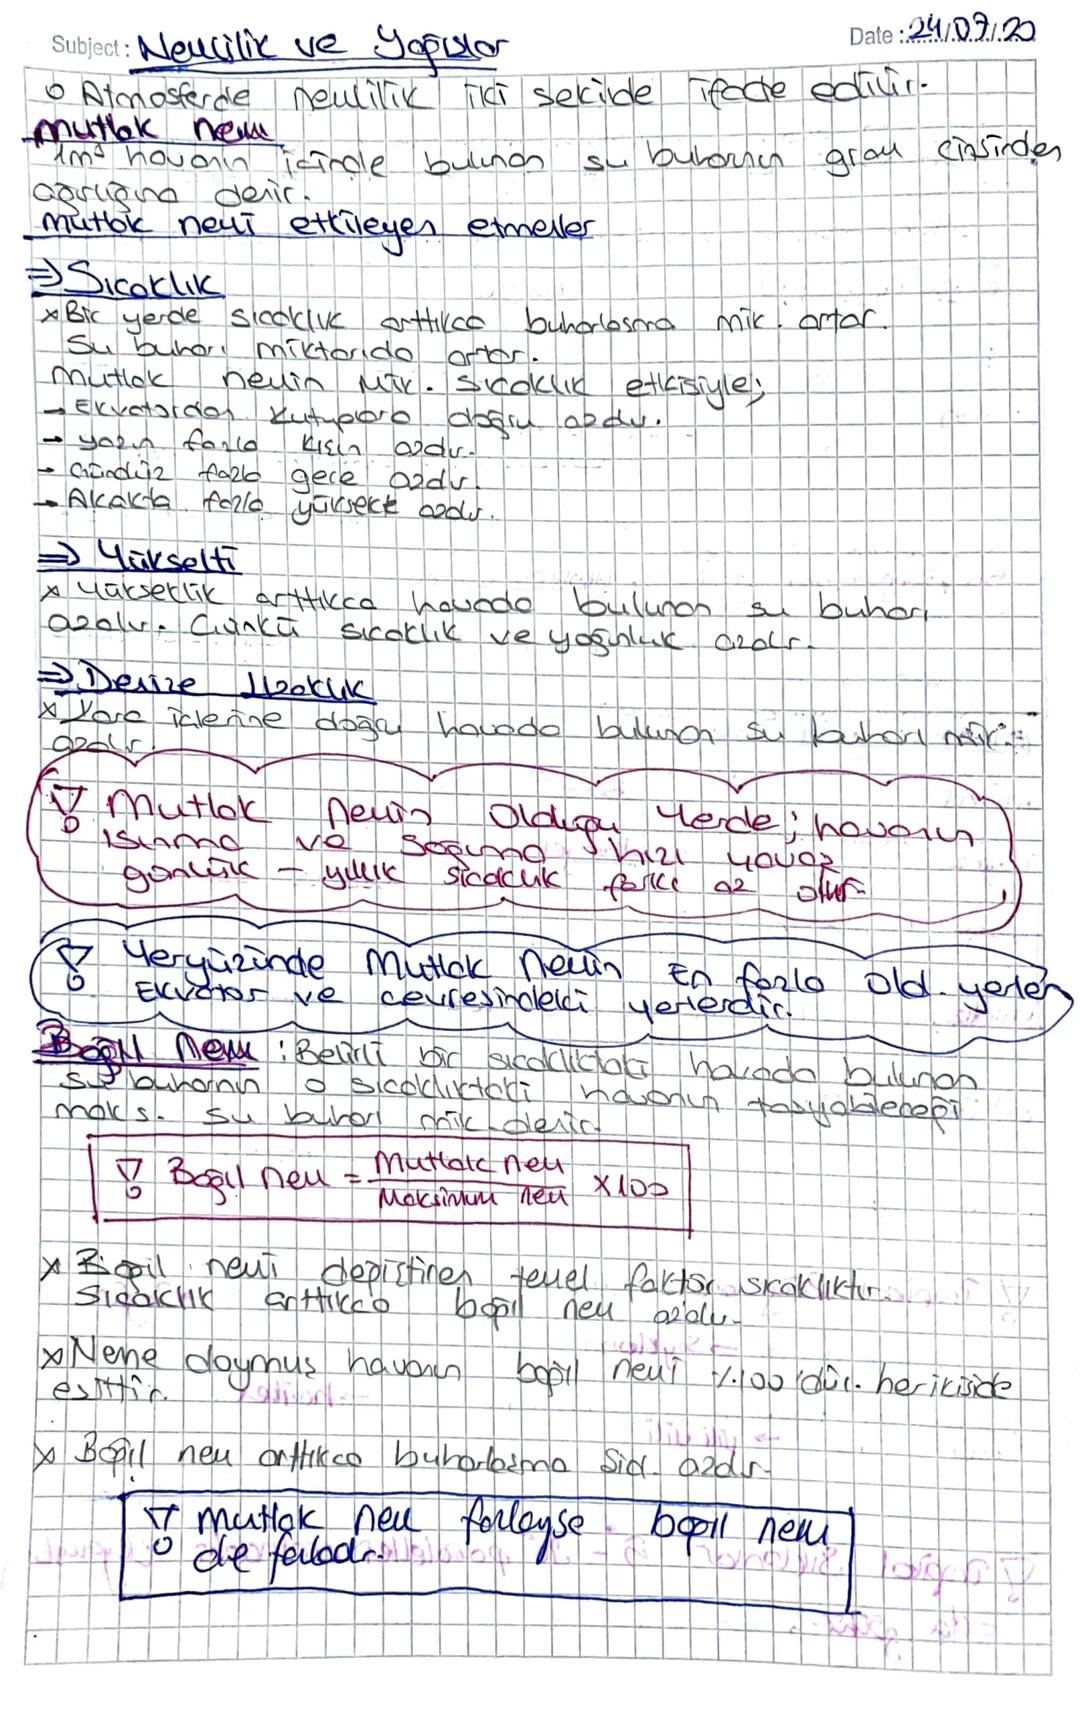 Subject: Nemlilik ve Yağışlar
Date: 24/09/20
o Atmosferde nemlilik iki şekilde ifade edilir.
Mutlak nem
1m³ havanın içinde bulunan su buharının gram cinsinden
ağırlığına denir.
Mutlak nemi etkileyen etmenler
⇒ Sıcaklık
x Bir yerde sıcaklık arttıkca buharlaşma mik. artar.
Su buharı miktarıda artar.
Mutlak nemin mik. sıcaklık etkisiyle;
→ Ekvatordan kutuplara doğru azdır.
→ yazın fazla kışın azdır.
→ Gündüz fazla gece azdır.
→ Alcakta fazla yüksekte azdır.
⇒ Yükselti
x Yükseklik arttıkca havada bulunan su buharı
azalır. Çünkü sıcaklık ve yoğunluk azalır.
⇒ Denize Uzaklık
x Kara içlerine doğru havada bulunan su buharı mik.
azalır.
Mutlak nemin Olduğu Yerde; havanın
ısınma ve soğuma hızı yavaş
günlük - yıllık sıcaklık farkı az olur.
Yeryüzünde Mutlak nemin En fazla Old. yerler
Ekvator ve cevresindeki yerlerdir.
Bağıl Nem: Belirli bir sıcaklıktaki havada bulunan
su buharının o sıcaklıktaki havanın taşıyabileceği
maks. su buharı mik. denir.
Bağıl nem = Mutlak nem / Maksimum nem x100
x Bağıl nemi değiştiren temel faktör sıcaklıktır.
Sıcaklık arttıkca bağıl nem azalır.
x Neme doymuş havanın bağıl nemi %100'dür. herikiside
eşittir.
x Bağıl nem arttıkca buharlaşma şid. azdır.
mutlak nem fazlaysa bağıl nem
de fazladır.